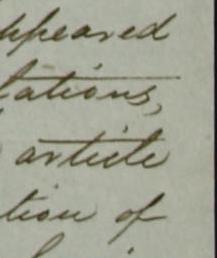 ppeared
tations,
article
tion of